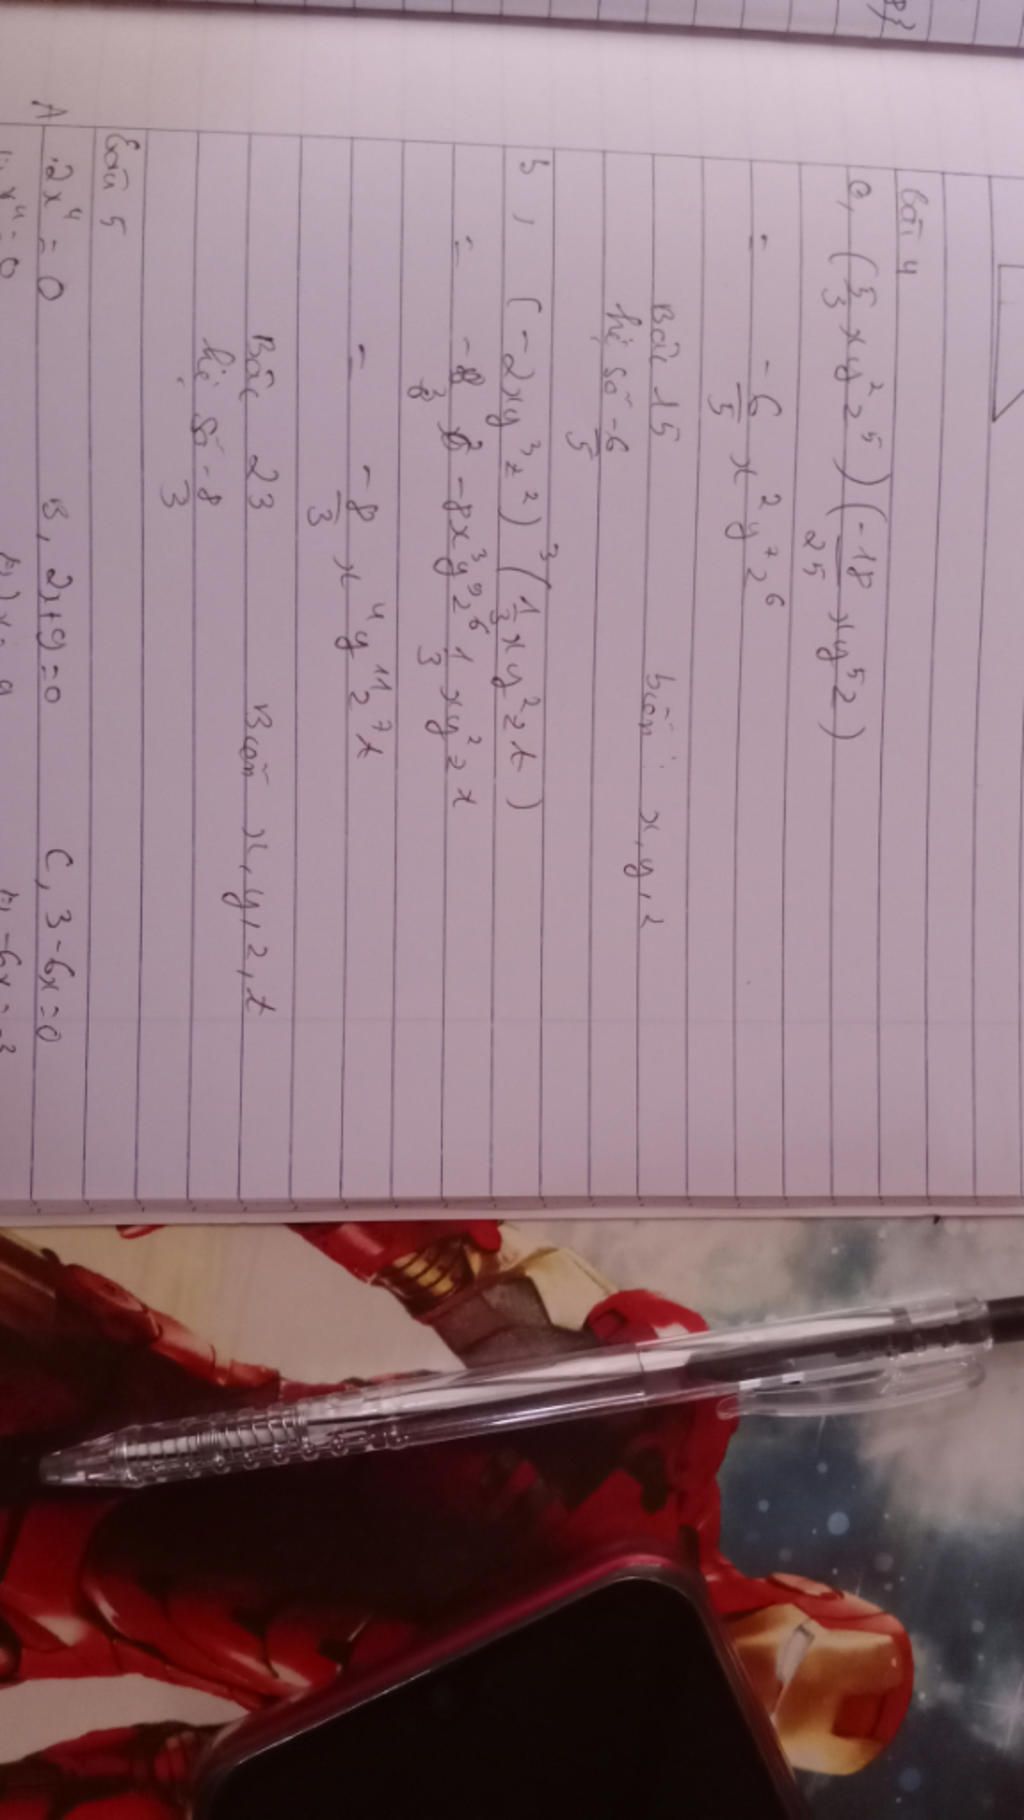 bài 4
a, (5/3 xy²z⁵) (-18/25 xy⁵z)
= -6/5 x²y⁷z⁶
Bậc 15 biến: x, y, z
hệ số -6/5
b, (-2xy³z²)³ (1/3 xy²zt)
= -8x³y⁹z⁶ 1/3 xy²z
= -8/3 x⁴y¹¹z⁷t
Bậc 23 Biến x, y, z, t
hệ số -8/3
Bài 5
A 2x⁴ = 0 B, 2x+9=0 C, 3-6x=0
x⁴=0